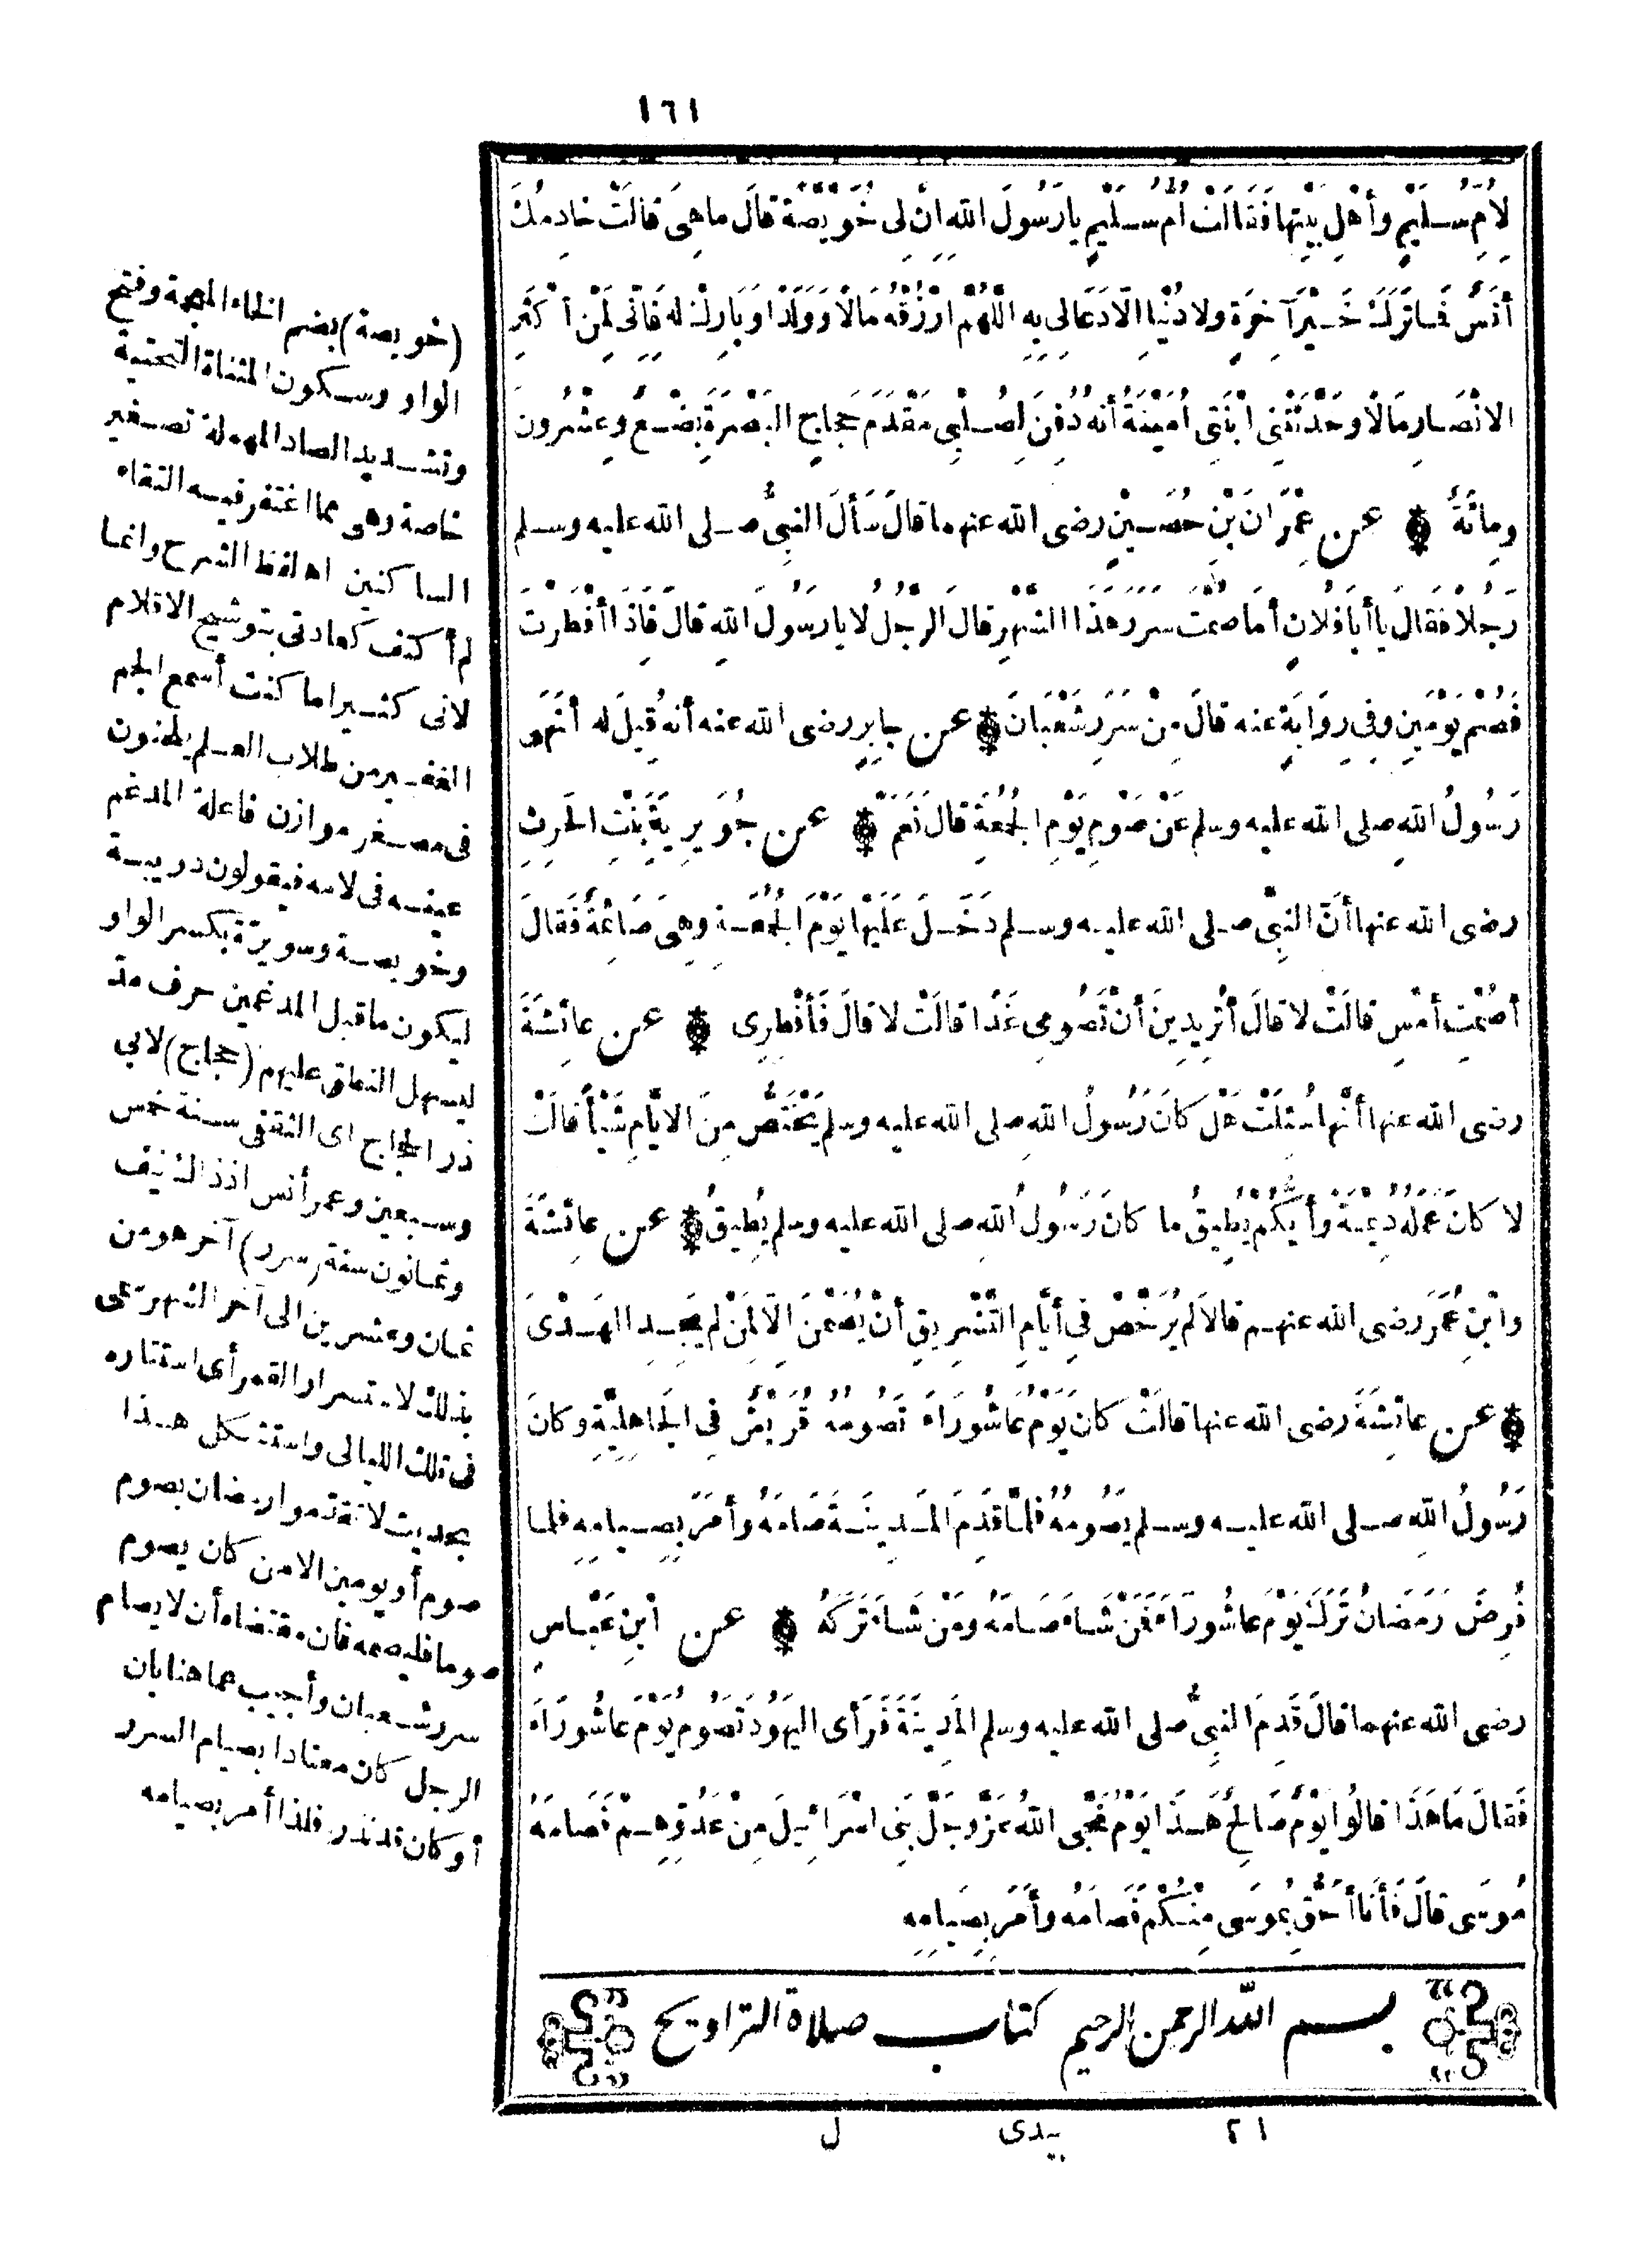 ١٦١
لِأُمِّ سُلَيْمٍ وأَهْلِ بَيْتِها فَقَالَتْ أُمُّ سُلَيْمٍ يا رَسُولَ اللهِ اِنَّ لِى خُوَيْصَّةً قالَ ماهِىَ قالَتْ خادِمُكَ
أَنَسٌ فَما تَرَكَ خَيْرَ آخِرَةٍ ولا دُنْيا اِلَّا دَعَا لِى بِهِ اللّٰهُمَّ ارْزُقْهُ مَالًا وَوَلَدًا وَبَارِكْ لَهُ فَاِنِّى لَمِنْ أَكْثَرِ
الانْصَارِ مَالًا وحَدَّثَتْنِى ابْنَتِى أُمَيْنَةُ أَنه دُفِنَ لِصُلْبِى مَقْدَمَ حَجَّاجٍ البَصْرَةَ بِضْعٌ وعِشْرُونَ
ومِائَةٌ ۞ عن عِمْرَانَ بْنِ حُصَيْنٍ رضى الله عنهما قالَ سَأَلَ النبىُّ صلى الله عليه وسلم
رَجُلًا فقَالَ يا أَبَا فُلانٍ أَمَا صُمْتَ سَرَرَ هَذَا الشَّهْرِ قالَ الرَّجُلُ لا يا رَسُولَ اللهِ قالَ فَاِذَا أَفْطَرْتَ
فَصُمْ يَوْمَيْنِ وفِى رِوَايَةٍ عنه قالَ مِنْ سَرَرِ شَعْبَانَ ۞ عن جابِرٍ رضى الله عنه أنه قِيلَ له أَنَهَى
رَسُولُ اللهِ صلى الله عليه وسلم عَنْ صَوْمِ يَوْمِ الجُمُعَةِ قالَ نَعَمْ ۞ عن جُوَيْرِيَةَ بِنْتِ الحَرِثِ
رضى الله عنها أَنَّ النبِىَّ صلى الله عليه وسلم دَخَلَ عَلَيْها يَوْمَ الجُمُعَةِ وهِىَ صَائِمَةٌ فَقالَ
أَصُمْتِ أَمْسِ قالَتْ لا قالَ أَتُرِيدِينَ أَنْ تَصُومِى غَدًا قالَتْ لا قالَ فَأَفْطِرِى ۞ عن عائِشَةَ
رضى الله عنها أَنَّها سُئِلَتْ هَلْ كانَ رَسُولُ اللهِ صلى الله عليه وسلم يَخْتَصُّ مِنَ الايَّامِ شَيْأً قالَتْ
لا كانَ عَمَلُهُ دِيمَةً وأَيُّكُمْ يُطِيقُ ما كانَ رَسُولُ اللهِ صلى الله عليه وسلم يُطِيقُ ۞ عن عائِشَةَ
وابْنِ عُمَرَ رضى الله عنهم قالَا لَم يُرَخَّصْ فِى أَيَّامِ التَّشْرِيقِ أَنْ يُصَمْنَ اِلَّا لِمَنْ لم يَجِدِ الهَدْىَ
۞ عن عائِشَةَ رضى الله عنها قالَتْ كانَ يَوْمُ عَاشُورَاءَ تَصُومُهُ قُرَيْشٌ فِى الجَاهِلِيَّةِ وكانَ
رَسُولُ اللهِ صلى الله عليه وسلم يَصُومُهُ فَلَمَّا قَدِمَ المَدِينَةَ صَامَهُ وأَمَرَ بِصِيامِهِ فلما
فُرِضَ رَمَضَانُ تَرَكَ يَوْمَ عاشُورَاءَ فَمَنْ شَاءَ صَامَهُ ومَنْ شَاءَ تَرَكَهُ ۞ عن ابْنِ عَبَّاسٍ
رضى الله عنهما قالَ قَدِمَ النبِىُّ صلى الله عليه وسلم المَدِينَةَ فَرَأَى اليَهُودَ تَصُومُ يَوْمَ عَاشُورَاءَ
فَقالَ مَا هَذَا قالُوا يَوْمٌ صَالِحٌ هَذَا يَوْمٌ نَجَّى اللهُ عَزَّ وجَلَّ بَنِى اسْرَائِيلَ مِنْ عَدُوِّهِمْ فَصَامَهُ
مُوسَى قالَ فَأَنَا أَحَقُّ بِمُوسَى مِنْكُمْ فَصَامَهُ وأَمَرَ بِصِيَامِهِ
بسم الله الرحمن الرحيم كتاب صلاة التراويح
٢١ زبيدى ل
(خويصة) بضم الخاء المعجمة وفتح
الواو وسكون المثناة التحتية
وتشديد الصاد المهملة تصغير
خاصة وهى مما اغتفر فيه التقاء
الساكنين اه لفظ الشرح وانما
لم أكتف كعادتى بتوشيح الاقلام
لانى كثيرا ما كنت أسمع الجم
الغفير من طلاب العلم يلحنون
فى مصغر موازن فاعلة المدغم
عينه فى لامه فيقولون دريبة
وخويصة وسويرّة بكسر الواو
ليكون ما قبل المدغمين حرف مد
ليسهل النطق عليهم (حجاج) لابى
ذر الحجاج اى الثقفى سنة خمس
وسبعين وعمر أنس اذذاك نيف
وثمانون سنة (سرر) آخر هو من
ثمان وعشرين الى آخر الشهر سمى
بذلك لاستسرار القمر أى استتاره
فى تلك الليالى واستشكل هذا
بحديث لا تقدموا رمضان بصوم
صوم أو يومين الا من كان يصوم
صوما فليصمه فان مقتضاه أن لا يصام
سرر شعبان وأجيب عما هنا بان
الرجل كان معتادا بصيام السرر
أو كان قد نذره فلذا أمر بصيامه